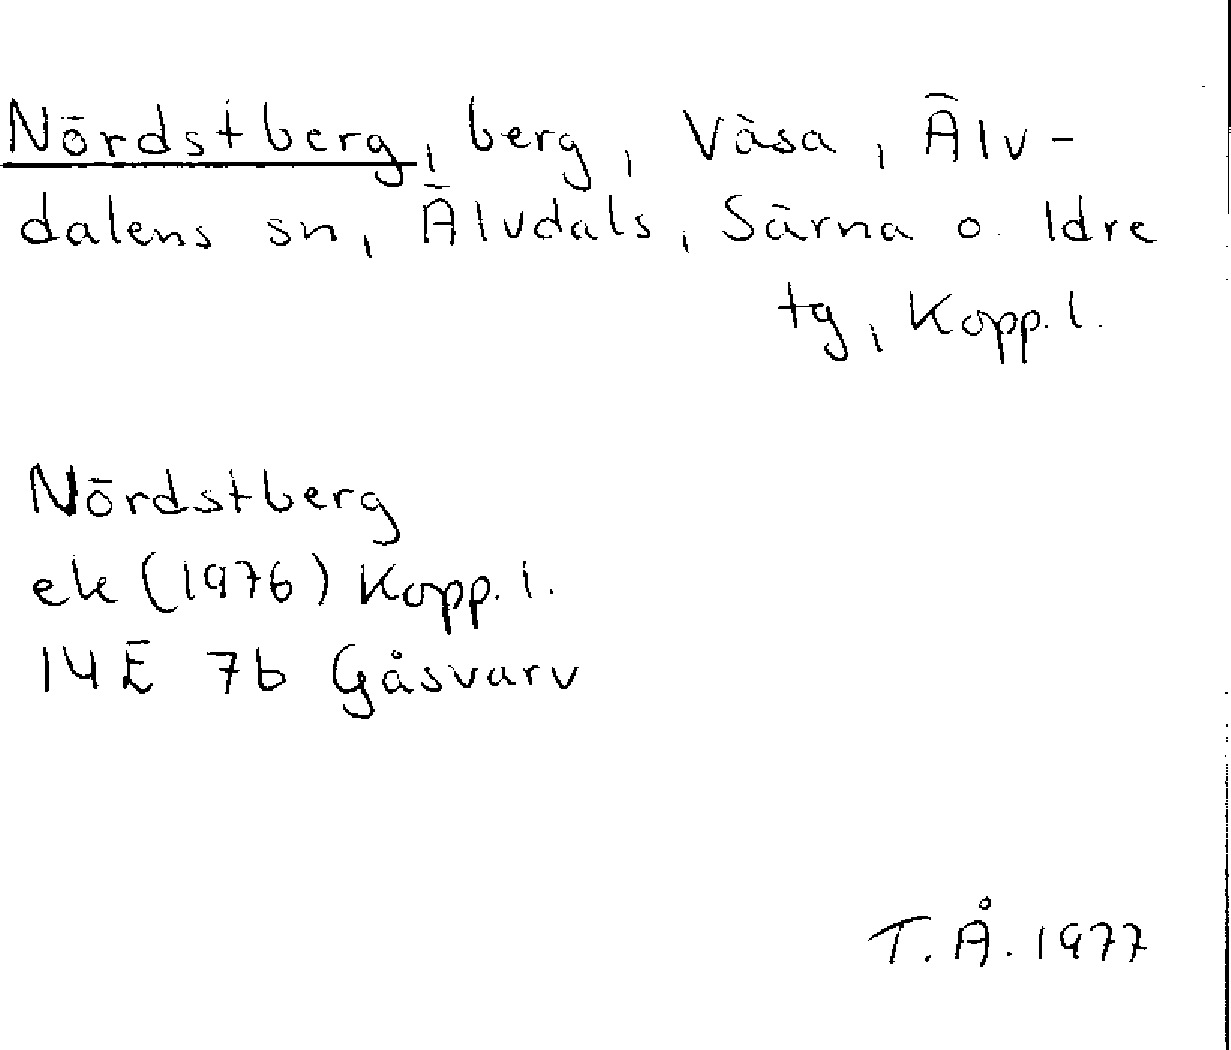 Nördstberg, berg, Väsa, Älv-
dalens sn, Älvdals, Särna o. Idre
tg, Kopp. l.
Nördstberg
ek (1976) Kopp. l.
14E 7b Gåsvarv
T. Å. 1977